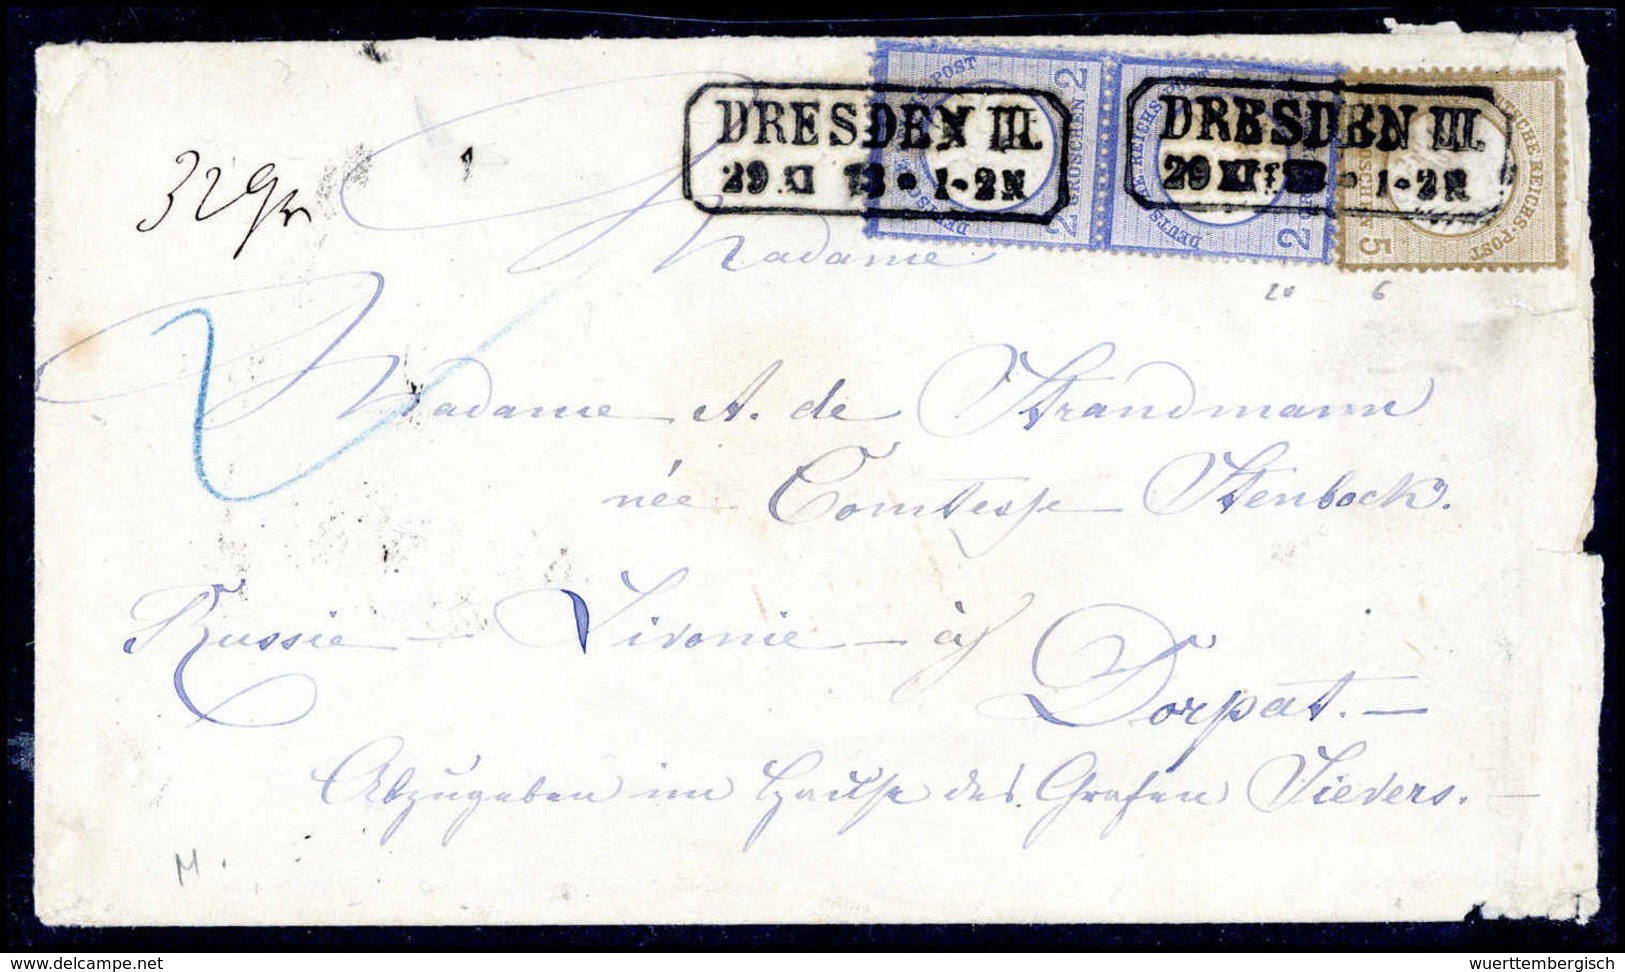 DRESDEN III.
29 XI 73 • 1-2 N
DRESDEN III.
29 XI 73 • 1-2 N
DEUTSCHE REICHS-POST
2 GROSCHEN 2
DEUTSCHE REICHS-POST
2 GROSCHEN 2
DEUTSCHE REICHS-POST
5
32 Gr
Madame
20 6
Madame A. de Strandmann
née Comtesse Stenbock.
Russie – Livonie – à
Dorpat. –
Abzugeben im Hause des Grafen Sievers. –
M.
delcampe.net
wuerttembergisch